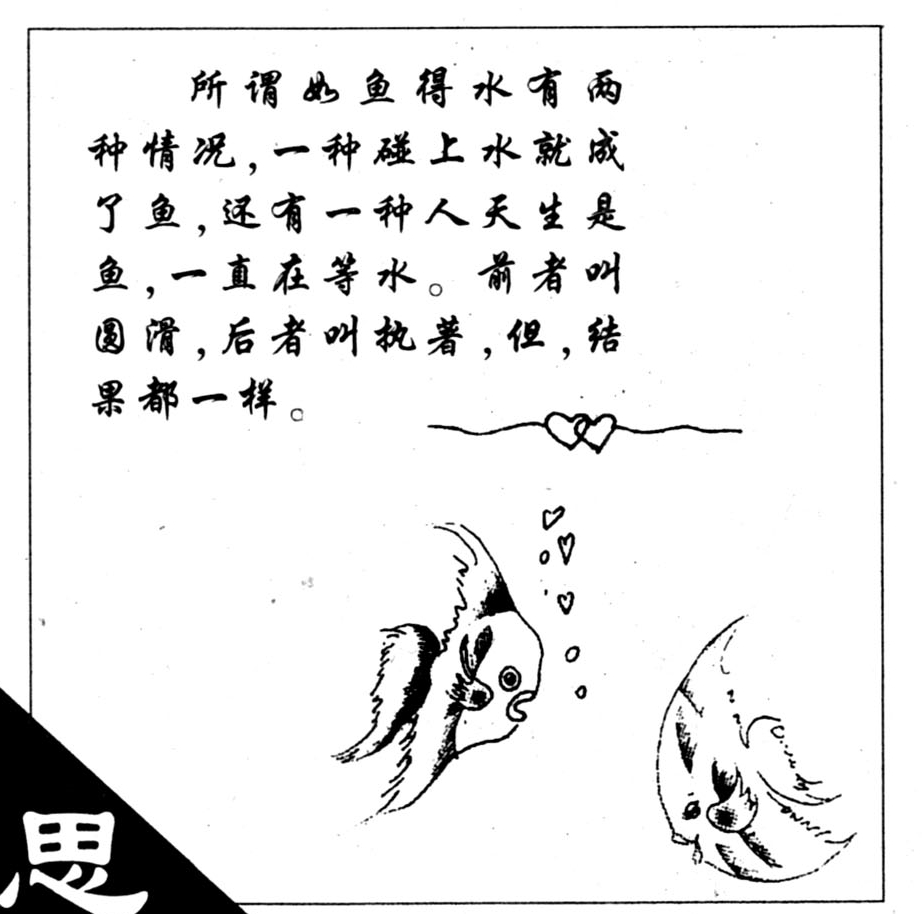 所谓如鱼得水有两
种情况,一种碰上水就成
了鱼,还有一种人天生是
鱼,一直在等水。前者叫
圆滑,后者叫执著,但,结
果都一样。
思